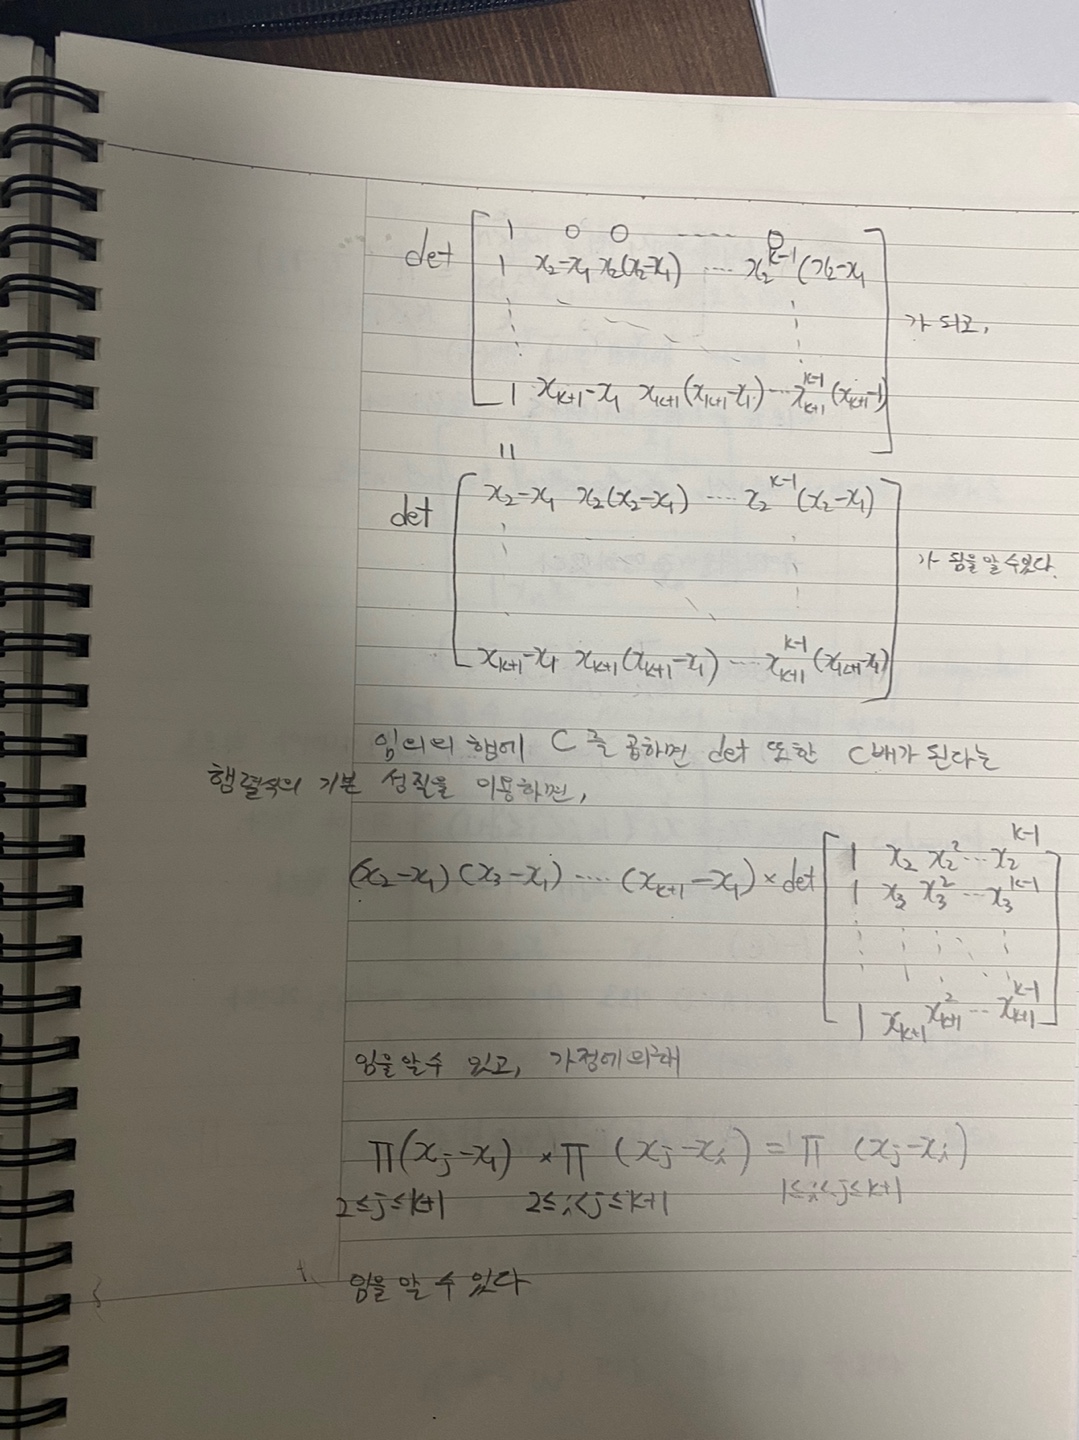 det [ 1 0 0 ---- 0
1 x₂-x₁ x₂(x₂-x₁) ... x₂^{k-1}(x₂-x₁
⋮ ⋱ ⋮ 가 되고,
1 x_{k+1}-x₁ x_{k+1}(x_{k+1}-x₁) ... x_{k+1}^{k-1}(x_{k+1}-1) ]
||
det [ x₂-x₁ x₂(x₂-x₁) ... x₂^{k-1}(x₂-x₁)
⋮ ⋱ ⋮ 가 됨을 알 수 있다.
x_{k+1}-x₁ x_{k+1}(x_{k+1}-x₁) ... x_{k+1}^{k-1}(x_{k+1}-x₁) ]
임의의 행에 C를 곱하면 det 또한 C배가 된다는
행렬식의 기본 성질을 이용하면,
(x₂-x₁)(x₃-x₁) .... (x_{k+1}-x₁) × det [ 1 x₂ x₂² ... x₂^{k-1}
1 x₃ x₃² ... x₃^{k-1}
⋮ ⋮ ⋮ ⋱ ⋮
1 x_{k+1} x_{k+1}² ... x_{k+1}^{k-1} ]
임을 알 수 있고, 가정에 의해
π(x_j-x₁) × π(x_j-x_i) = π(x_j-x_i)
2≤j≤k+1 2≤i<j≤k+1 1≤i<j≤k+1
임을 알 수 있다